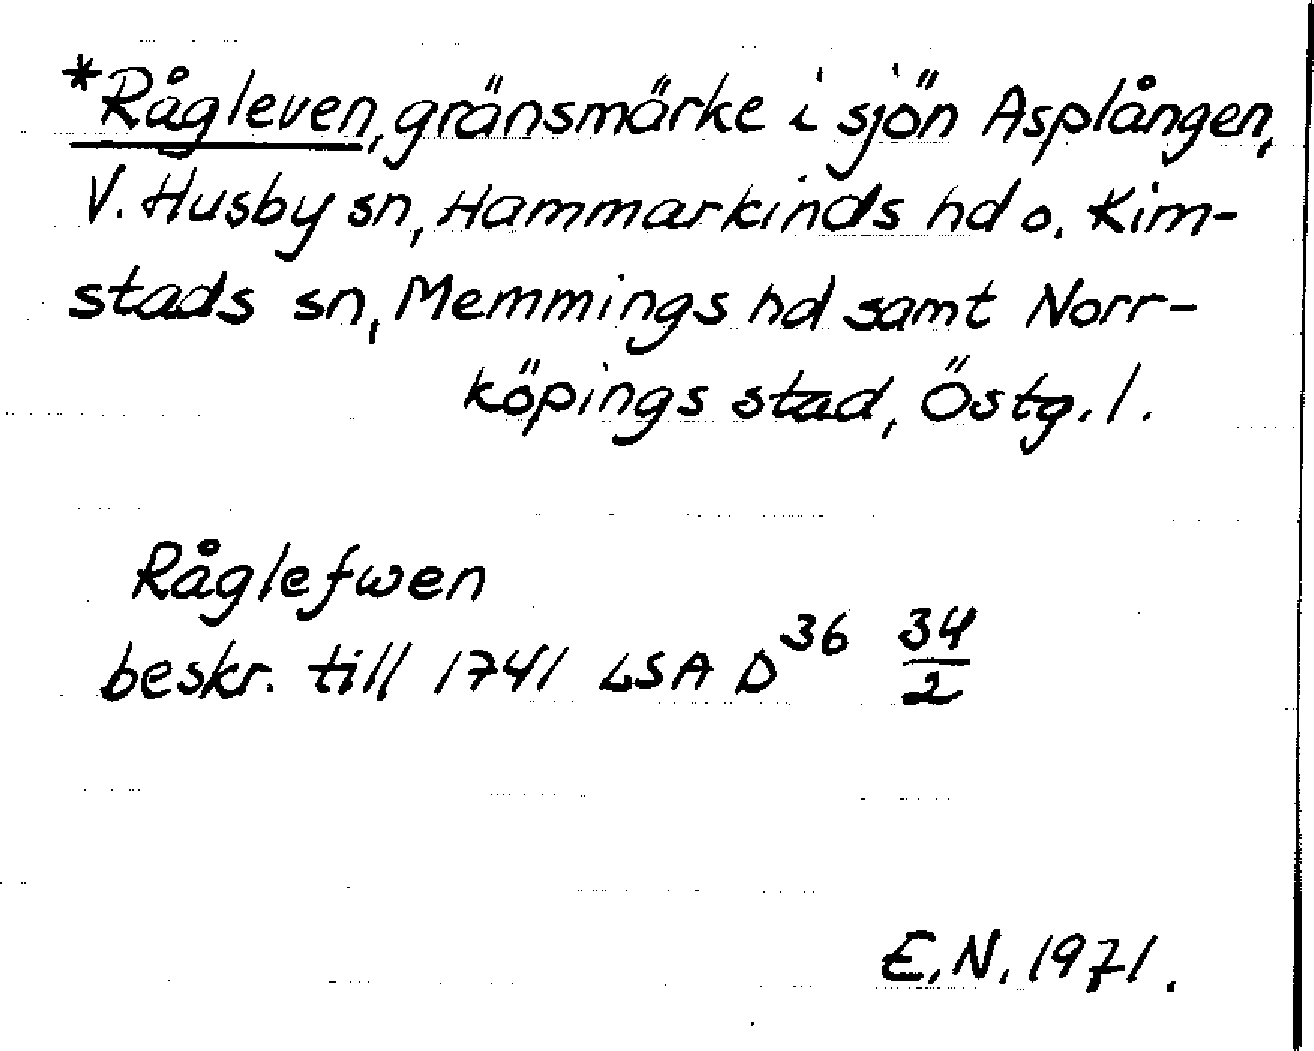 *Rågleven, gränsmärke i sjön Asplången,
V. Husby sn, Hammarkinds hd o. Kim-
stads sn, Memmings hd samt Norr-
köpings stad, Östg. l.
Råglefwen
beskr. till 1741 LSA D³⁶ 34/2
E.N. 1971.